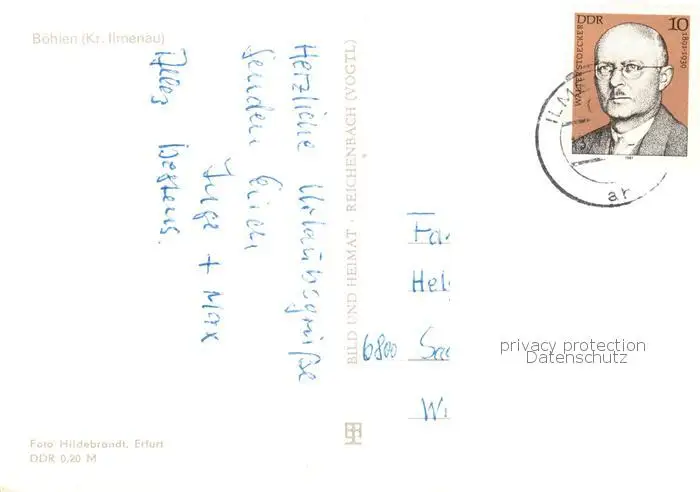 Böhlen (Kr. Ilmenau)
Herzliche Urlaubsgrüße
senden Euch
Inge + Max
Alles bestens.
Foto Hildebrandt, Erfurt
DDR 0,20 M
BILD UND HEIMAT · REICHENBACH (VOGTL)
DDR 10
WALTER STOECKER
1891-1939
1981
ILM
ar
Fa
Hel
6800 Saa
Wi
privacy protection
Datenschutz